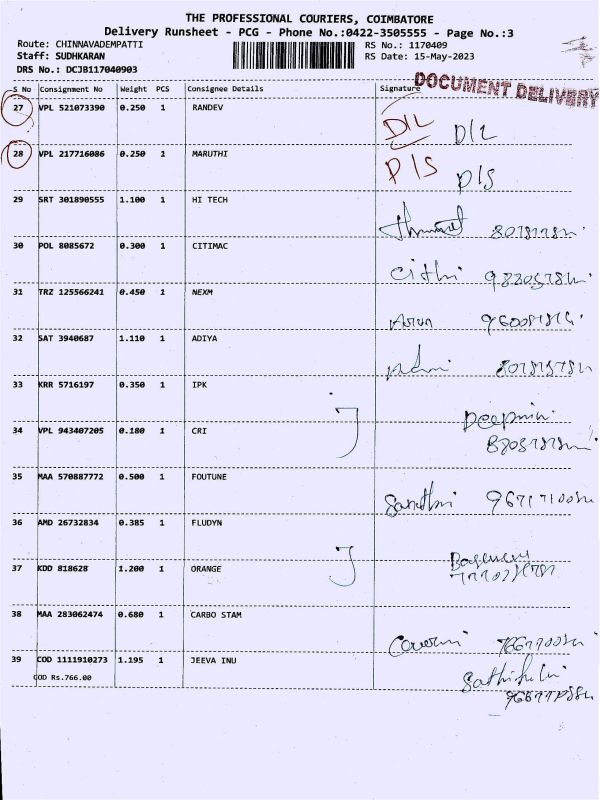 THE PROFESSIONAL COURIERS, COIMBATORE
Delivery Runsheet - PCG - Phone No.:0422-3505555 - Page No.:3
Route: CHINNAVADEMPATTI RS No.: 1170409
Staff: SUDHKARAN RS Date: 15-May-2023
DRS No.: DCJB117040903
DOCUMENT DELIVERY
S No Consignment No Weight PCS Consignee Details Signature
27 VPL 521073390 0.250 1 RANDEV D/L D/L
28 VPL 217716086 0.250 1 MARUTHI P/S P/S
29 SRT 301890555 1.100 1 HI TECH
30 POL 8085672 0.300 1 CITIMAC
31 TRZ 125566241 0.450 1 NEXM Arun
32 SAT 3940687 1.110 1 ADIYA
33 KRR 5716197 0.350 1 IPK
34 VPL 943407205 0.180 1 CRI
35 MAA 570887772 0.500 1 FOUTUNE
36 AMD 26732834 0.385 1 FLUDYN
37 KDD 818628 1.200 1 ORANGE
38 MAA 283062474 0.680 1 CARBO STAM
39 COD 1111910273 1.195 1 JEEVA INU
COD Rs.766.00